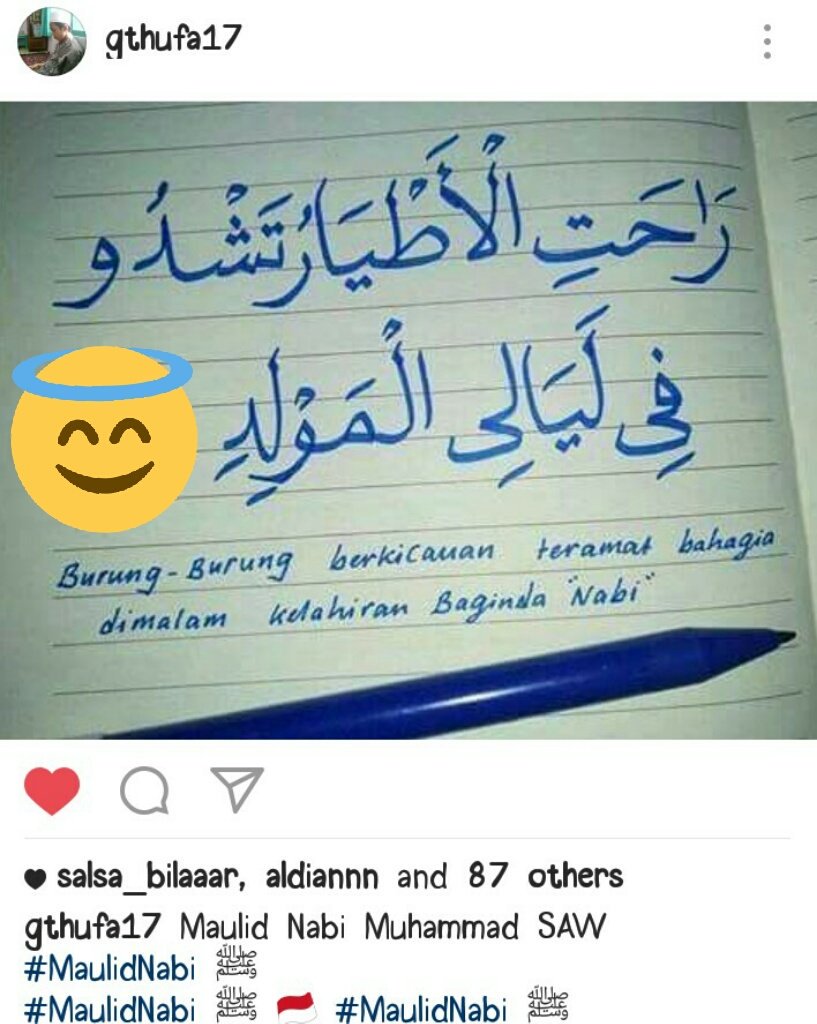 gthufa17
رَاحَتِ الْأَطْيَارُ تَشْدُو
فِي لَيَالِى الْمَوْلِدِ
Burung-Burung berkicauan teramat bahagia
dimalam kelahiran Baginda "Nabi"
salsa_bilaaar, aldiannn and 87 others
gthufa17 Maulid Nabi Muhammad SAW
#MaulidNabi ﷺ
#MaulidNabi ﷺ 🇮🇩 #MaulidNabi ﷺ